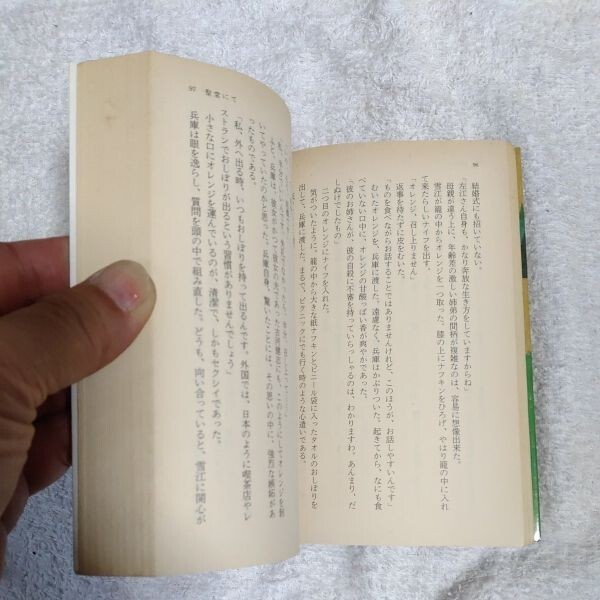 96
結婚式にも招いていない。
「左江さん自身も、かなり奔放な生き方をしていますからね」
母親が違う上に、年齢差の激しい姉弟の間柄が複雑なのは、容易に想像出来た。
雪江が籠の中からオレンジを一つ取った。膝の上にナフキンをひろげ、やはり籠の中に入れ
て来たらしいナイフを出す。
「オレンジ、召し上りません」
返事を待たずに皮をむいた。
「ものを食べながらお話することではありませんけれど、このほうが、お話しやすいんです」
むいたオレンジを、兵庫に渡した。遠慮なく、兵庫はかぶりついた。起きてから、なにも食
べていない口中に、オレンジの甘酸っぱい香が爽やかであった。
「彼のお姉さんが、彼の自殺に不審を持っていらっしゃるのは、わかりますわ、あんまり、だ
しぬけでしたもの」
二つ目のオレンジにナイフを入れた。
気がついたように、籠の中から大きな紙ナフキンとビニール袋に入ったタオルのおしぼりを
出して、兵庫に渡した。まるで、ピクニックにでも行く時のような心遣いである。
97 聖堂にて
ふと、兵庫は、彼女がかつて彼女の夫であった
いてやっていたのかと思った。兵庫自身、驚いたことには、その思いの中に、強烈な嫉妬があ
ったものである。
「私、外へ出る時、いつもおしぼりを持って出るんです。外国では、日本のように喫茶店やレ
ストランでおしぼりが出るという習慣がありませんでしょう」
小さな口にオレンジを運んでいるのが、清潔で、しかもセクシイであった。
兵庫は眼を逸らし、質問を頭の中で組み直した。どうも、向い合っていると、雪江に関心が